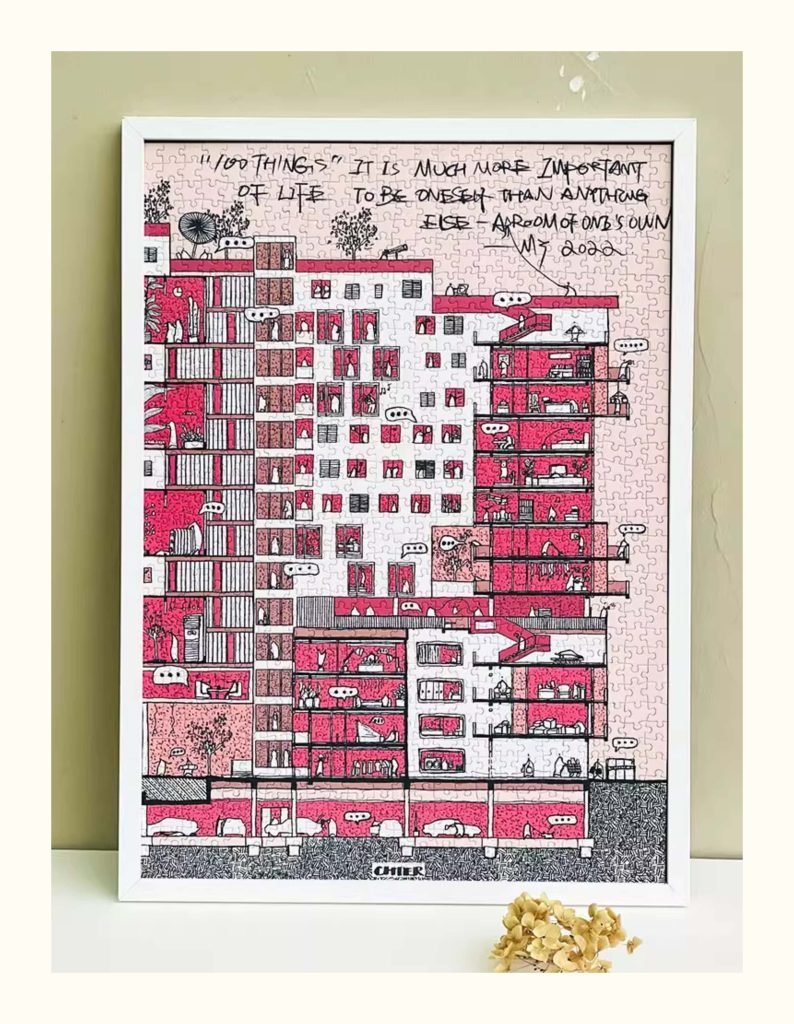 "100 THINGS" IT IS MUCH MORE IMPORTANT
OF LIFE TO BE ONESELF THAN ANYTHING
ELSE - A ROOM OF ONE'S OWN
2022